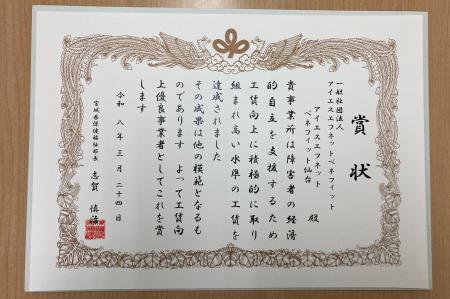 賞状
一般社団法人
アイエスエフネットベネフィット
アイエスエフネット
ベネフィット仙台 殿
貴事業所は障害者の経済
的自立を支援するため
工賃向上に積極的に取り
組まれ高い水準の工賃を
達成されました
その成果は他の模範となるも
のであります よって工賃向
上優良事業者としてこれを賞
します
令和八年三月二十四日
宮城県保健福祉部長 志賀 慎治